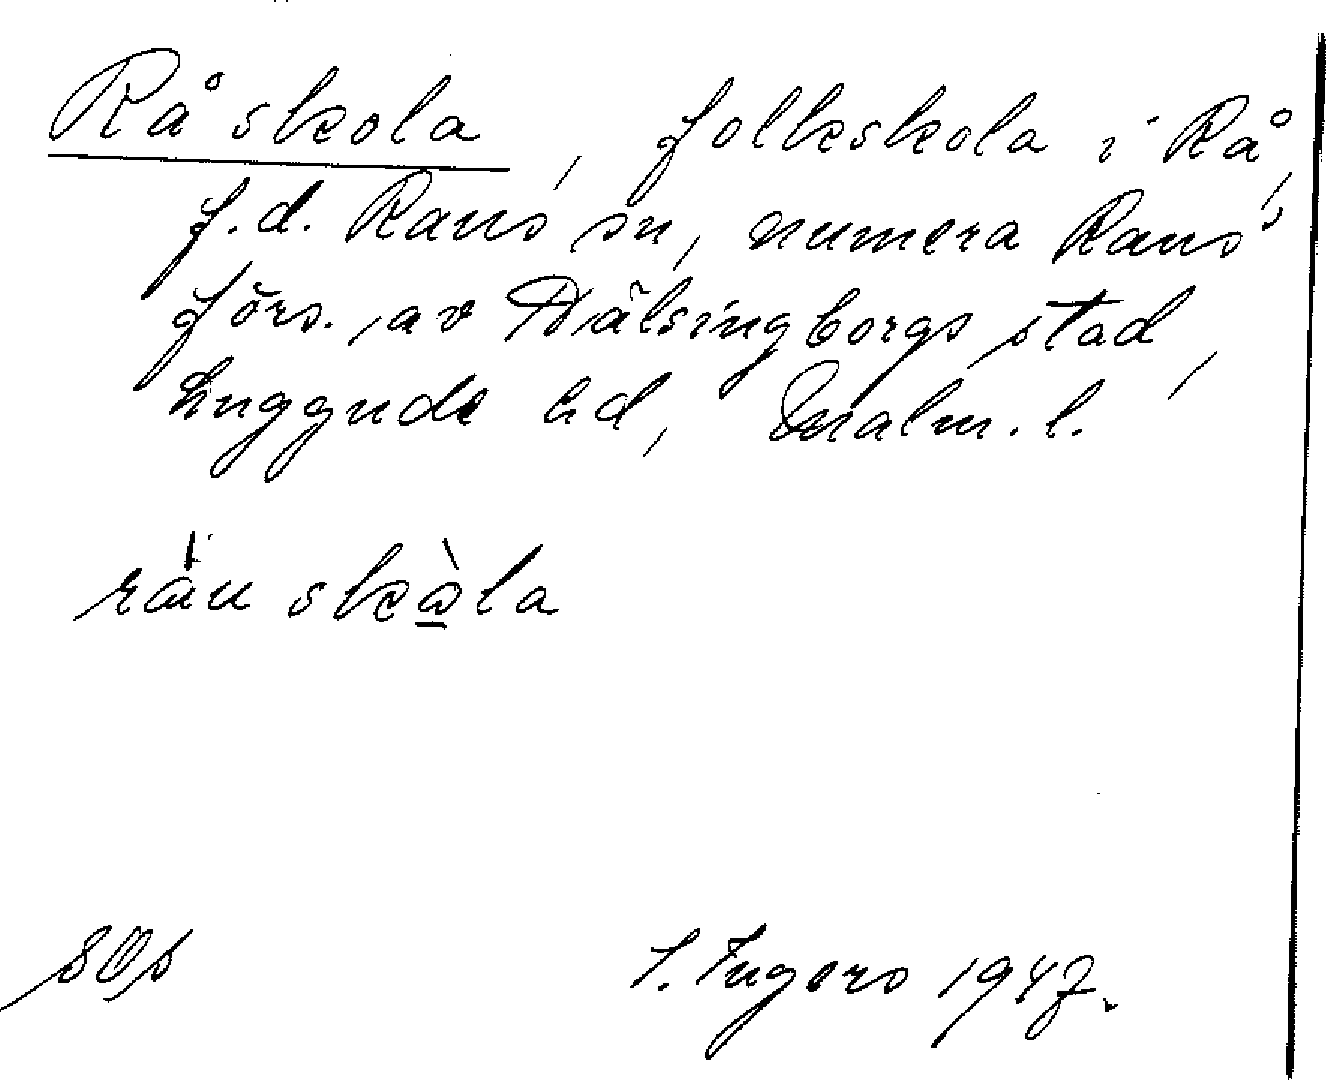 Rå skola, folkskola i Rå,
f.d. Raus sn, numera Raus
förs. av Hälsingborgs stad,
Luggude hd, Malm. l.
räu skola
S. Ingers 1947.